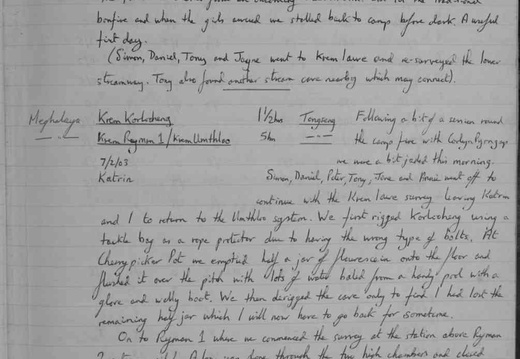 bonfire and when the girls arrived we strolled back to camp before dark. A useful
first day.
(Simon, Daniel, Tony and Jayne went to Krem lawe and re-surveyed the lower
streamway. Tony also found another stream cave nearby which may connect).
Meghalaya Krem Korlooheng 1½hrs Tongseng Following a bit of a session round
Krem Rymon 1 / Krem Umthloo 5hrs the camp fire with
7/2/03 we were a bit jaded this morning.
Katrin Simon, Daniel, Peter, Tony, Jane and Annie went off to
continue with the Krem lawe survey leaving Katrin
and I to return to the Umthloo system. We first rigged Korlooheng using a
tackle bag as a rope protector due to having the wrong type of bolts. At
Cherrypicker Pot we emptied half a jar of flourescein onto the floor and
flushed it over the pitch with lots of water baled from a handy pool with a
glove and welly boot. We then derigged the cave only to find I had lost the
remaining half jar which I will now have to go back for sometime.
On to Rymon 1 where we commenced the survey at the station above Rymon
was done through the two high chambers and closed